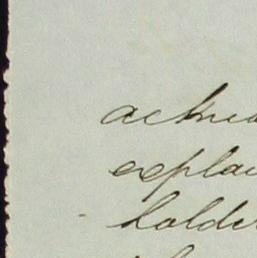 ackno
explai
holde